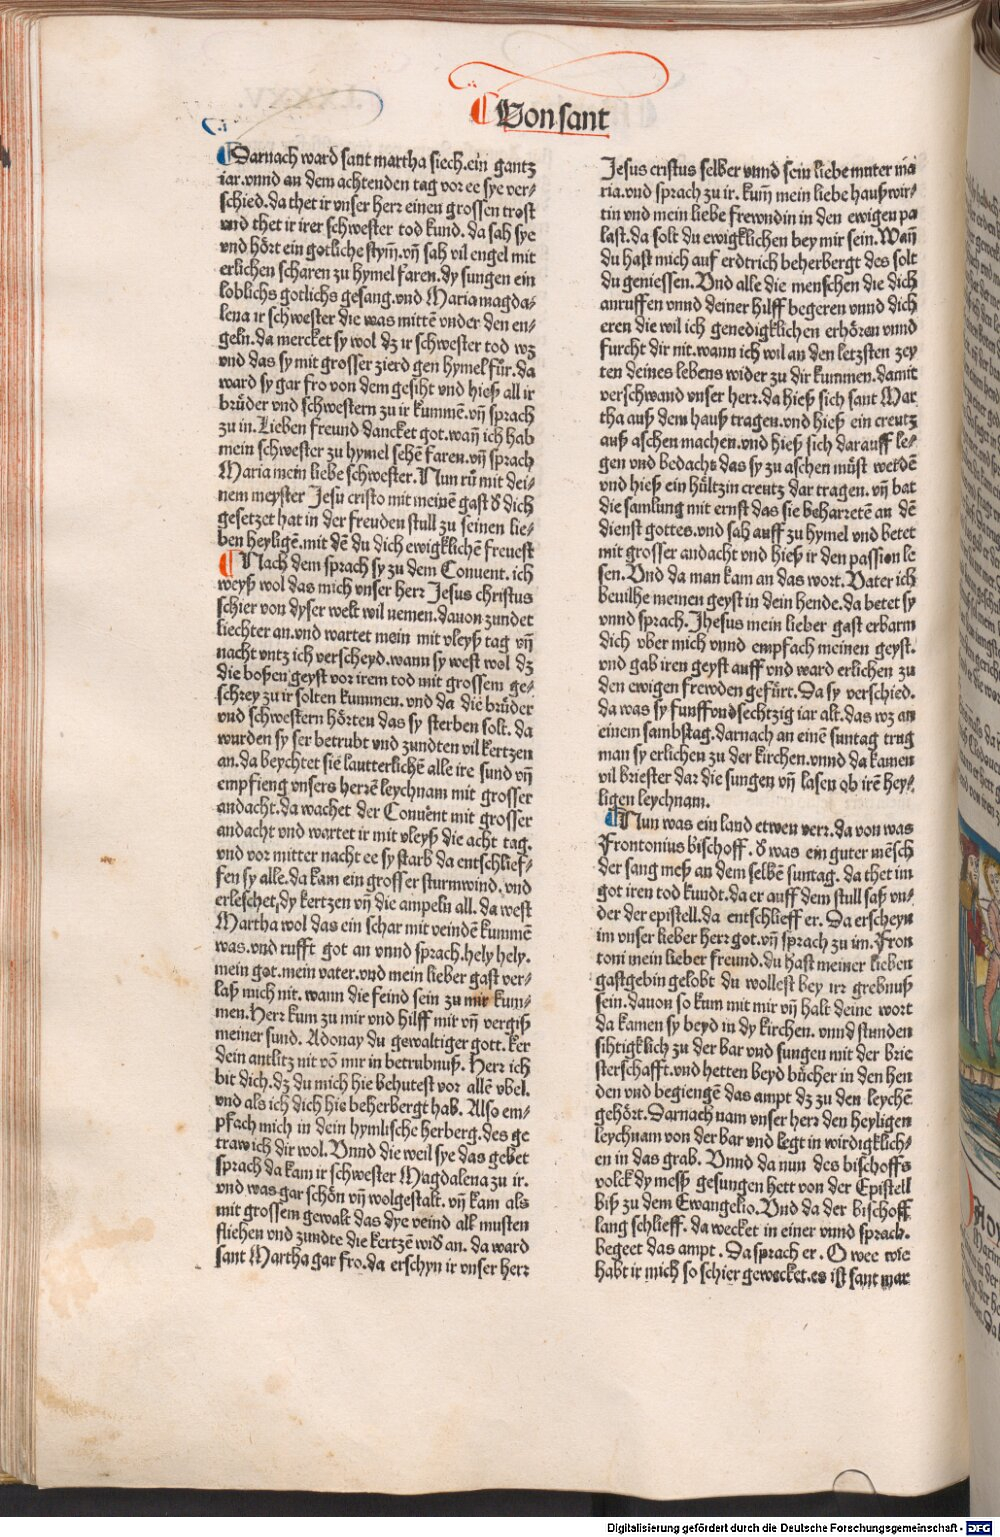 Von sant
Darnach ward sant martha siech. ein gantz
iar. vnnd an dem achtenden tag vor ee sye ver⸗
schied. da thet ir vnser herr einen grossen trost
vnd thet ir irer schwester tod kund. da sah sye
vnd hört ein gotliche stym̃. vñ sah vil engel mit
erlichen scharen zu hymel faren. dy sungen ein
loblichs gotlichs gesang. vnd Maria magda⸗
lena ir schwester die was mittē vnder den en⸗
geln. da mercket sy wol dz ir schwester tod wz
vnd das sy mit grosser zierd gen hymel für. da
ward sy gar fro von dem gesiht vnd hieß all ir
brüder vnd schwestern zu ir kummē. vñ sprach
zu in. Lieben freund dancket got. wañ ich hab
mein schwester zu hymel sehē faren. vñ sprach
Maria mein liebe schwester. Nun rů mit dei⸗
nem meyster Jesu cristo mit meinē gast d̕ dich
gesetzet hat in der freuden stull zu seinen lie⸗
ben heyligē. mit dē du dich ewigklichē freuest
Nach dem sprach sy zu dem Conuent. ich
weyß wol das mich vnser herr Jesus christus
schier von dyser welt wil nemen. dauon zundet
liechter an. vnd wartet mein mit vleyß tag vñ
nacht vntz ich verscheyd. wann sy west wol dz
die boßen geyst vor irem tod mit grossem ge⸗
schrey zu ir solten kummen. vnd da die brüder
vnd schwestern hörten das sy sterben solt. da
wurden sy ser betrubt vnd zundten vil kertzen
an. da beychtet sie lautterlichē alle ire sund vñ
empfieng vnsers herrē leychnam mit grosser
andacht. da wachet der Conuent mit grosser
andacht vnd wartet ir mit vleyß die acht tag.
vnd vor mitter nacht ee sy starb da entschlief⸗
fen sy alle. da kam ein grosser sturmwind. vnd
erleschet dy kertzen vñ die ampeln all. da west
Martha wol das ein schar mit veindē kummē
was. vnd rufft got an vnnd sprach. hely hely.
mein got. mein vater. vnd mein lieber gast ver⸗
laß mich nit. wann die feind sein zu mir kum⸗
men. Herr kum zu mir vnd hilff mit vñ vergiß
meiner sund. Adonay du gewaltiger gott. ker
dein antlitz nit võ mir in betrubnuß. Herr ich
bit dich. dz du mich hie behutest vor allē vbel.
vnd als ich dich hie beherbergt hab. Also em⸗
pfach mich in dein hymlische herberg. des ge
traw ich dir wol. Vnnd die weil sye das gebet
sprach da kam ir schwester Magdalena zu ir.
vnd was gar schön vñ wolgestalt. vñ kam als
mit grossem gewalt das dye veind all musten
fliehen vnd zundte die kertzē wid̕ an. da ward
sant Martha gar fro. da erschyn ir vnser herr
Jesus cristus selber vnnd sein liebe muter ma
ria. vnd sprach zu ir. kum̃ mein liebe haußwir⸗
tin vnd mein liebe frewndin in den ewigen pa
last. da solt du ewigklichen bey mir sein. Wañ
du hast mich auf erdtrich beherbergt des solt
du geniessen. Vnd alle die menschen die dich
anruffen vnnd deiner hilff begeren vnnd dich
eren die wil ich genedigklichen erhören vnnd
furcht dir nit. wann ich wil an den letzsten zey
ten deines lebens wider zu dir kummen. damit
verschwand vnser herr. da hieß sich sant Mar
tha auß dem hauß tragen. vnd hieß ein creutz
auß aschen machen. vnd hieß sich darauff le⸗
gen vnd bedachs das sy zu aschen müst werdē
vnd hieß ein hültzin creutz dar tragen. vñ bat
die samlung mit ernst das sie beharretē an dē
dienst gottes. vnd sah auff zu hymel vnd betet
mit grosser andacht vnd hieß ir den passion le
sen. Vnd da man kam an das wort. Vater ich
beuilhe meinen geyst in dein hende. da betet sy
vnnd sprach. Jhesus mein lieber gast erbarm
dich vber mich vnnd empfach meinen geyst.
vnd gab iren geyst auff vnd ward erlichen zu
den ewigen frewden gefürt. Da sy verschied.
da was sy funffvndsechtzig iar alt. das wz an
einem sambstag. darnach an einē suntag trug
man sy erlichen zu der kirchen. vnnd da kamen
vil briester dar die sungen vñ lasen ob irē hey⸗
ligen leychnam.
Nun was ein land etwen verr. da von was
Frontonius bischoff. d̕ was ein guter mēsch
der sang meß an dem selbē suntag. da thet im
got iren tod kundt. da er auff dem stull saß vn⸗
der der epistell. da entschlieff er. Da erscheyn
im vnser lieber herr got. vñ sprach zu im. Fron
toni mein lieber freund. du hast meiner lieben
gastgebin gelobt du wollest bey irr grebnuß
sein. dauon so kum mit mir vñ halt deine wort
da kamen sy beyd in dy kirchen. vnnd stunden
sihtigklich zu der bar vnd sungen mit der brie
sterschafft. vnd hetten beyd bücher in den hen
den vnd begiengē das ampt dz zu den leychē
gehört. Darnach nam vnser herr den heyligen
leychnam von der bar vnd legt in wirdigklich⸗
en in das grab. Vnnd da nun des bischoffs
volck dy messz gesungen hett von der Epistell
biß zu dem Ewangelio. Vnd da der bischoff
lang schlieff. da wecket in einer vnnd sprach.
begeet das ampt. Da sprach er. O wee wie
habt ir mich so schier gewecket. es ist sant mar
Digitalisierung gefördert durch die Deutsche Forschungsgemeinschaft - DFG